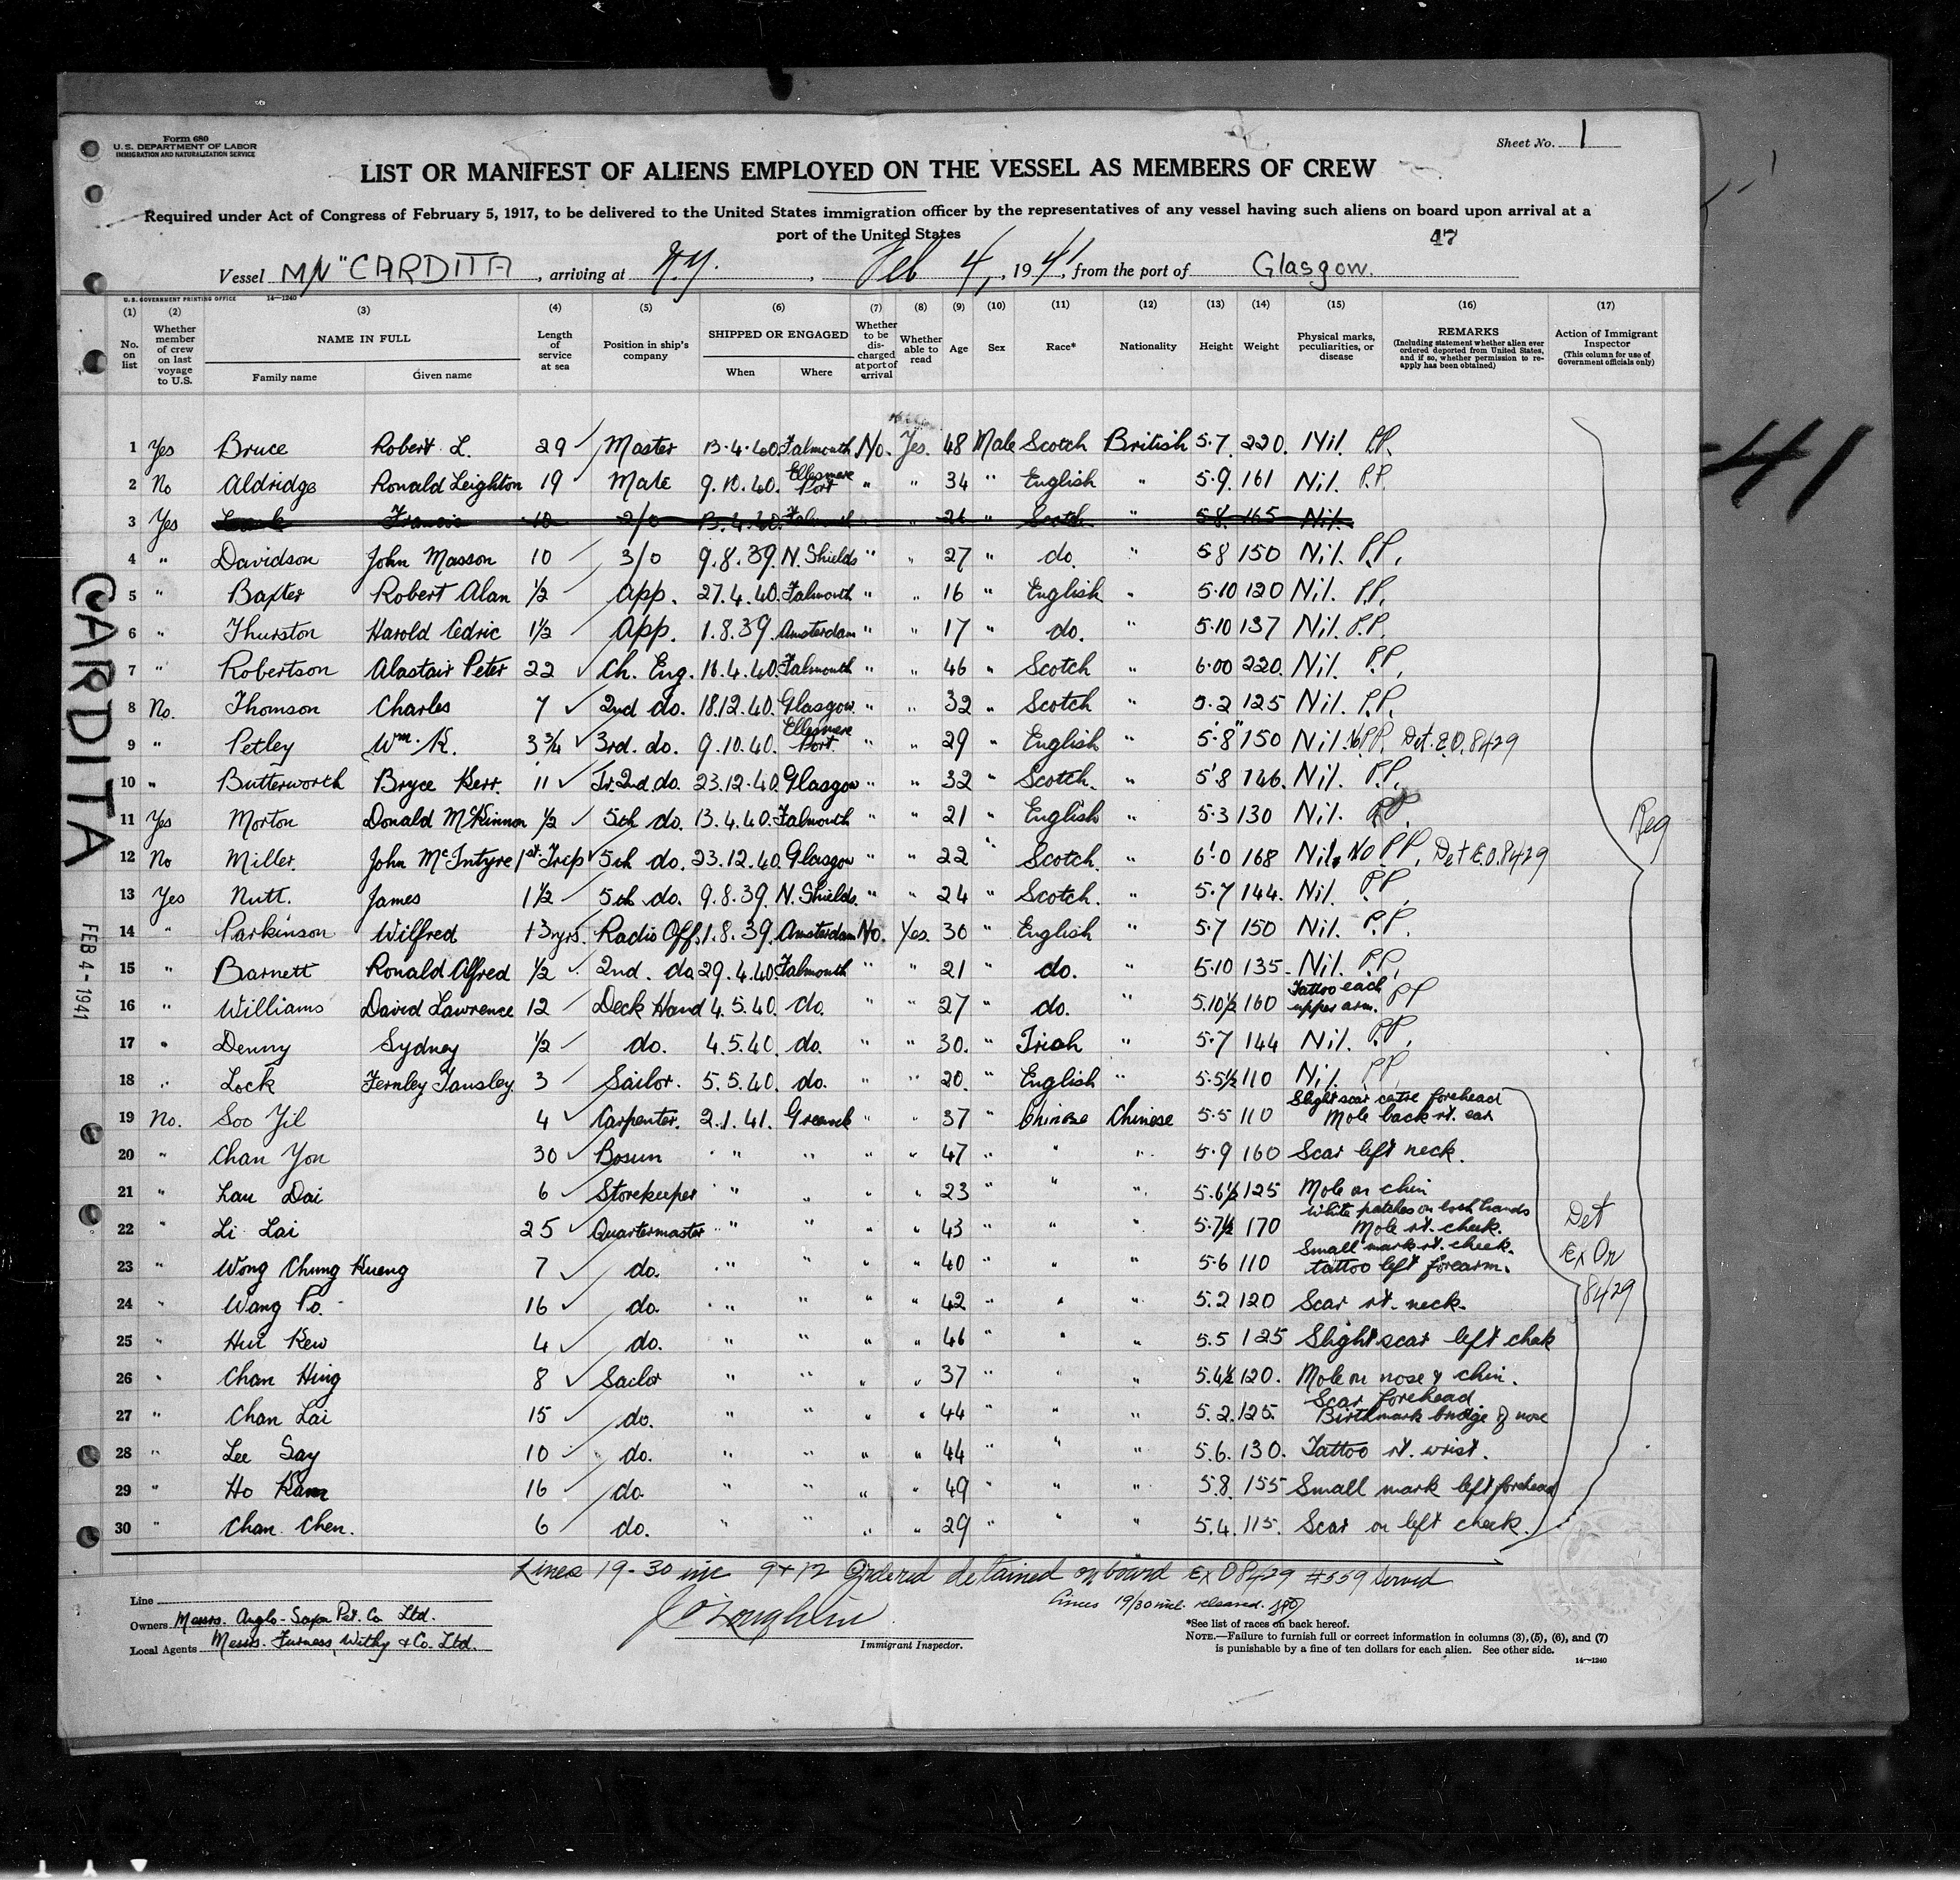 Form 680
U.S. DEPARTMENT OF LABOR
IMMIGRATION AND NATURALIZATION SERVICE
Sheet No. 1
LIST OR MANIFEST OF ALIENS EMPLOYED ON THE VESSEL AS MEMBERS OF CREW
Required under Act of Congress of February 5, 1917, to be delivered to the United States immigration officer by the representatives of any vessel having such aliens on board upon arrival at a
port of the United States
47
Vessel M/V "CARDITA , arriving at N.Y. , Feb 4, 1941, from the port of Glasgow.
U.S. GOVERNMENT PRINTING OFFICE 14—1240
(1) No. on list
(2) Whether member of crew on last voyage to U.S.
(3) NAME IN FULL
Family name Given name
(4) Length of service at sea
(5) Position in ship's company
(6) SHIPPED OR ENGAGED
When Where
(7) Whether to be discharged at port of arrival
(8) Whether able to read
(9) Age
(10) Sex
(11) Race*
(12) Nationality
(13) Height
(14) Weight
(15) Physical marks, peculiarities, or disease
(16) REMARKS
(Including statement whether alien ever ordered deported from United States, and if so, whether permission to re-apply has been obtained)
(17) Action of Immigrant Inspector
(This column for use of Government officials only)
1 Yes Bruce Robert L. 29 Master 13.4.40 Falmouth No. Yes. 48 Male Scotch British 5.7 220. Nil. P.P.
2 No Aldridge Ronald Leighton 19 Mate 9.10.40. Ellesmere Port " " 34 " English " 5.9. 161 Nil. P.P.
3 Yes Francis 10 2/0 13.4.40 Falmouth " " " Scotch 5.8. 165 Nil.
4 " Davidson John Masson 10 3/0 9.8.39. N. Shields " " 27 " do. " 5 8 150 Nil. P.P.
5 " Baxter Robert Alan 1/2 App. 27.4.40. Falmouth " " 16 " English " 5.10 120 Nil. P.P.
6 " Thurston Harold Cedric 1 1/2 App. 1.8.39. Amsterdam " " 17 " do. " 5.10 137 Nil. P.P.
7 " Robertson Alastair Peter 22 Ch. Eng. 16.4.40. Falmouth " " 46 " Scotch " 6.00 220. Nil. P.P.
8 No. Thomson Charles 7 2nd do. 18.12.40. Glasgow " " 32 " Scotch " 5.2 125 Nil. P.P.
9 " Petley Wm. K. 3 3/4 3rd. do. 9.10.40. Ellesmere Port. " " 29 " English " 5'.8" 150 Nil. No P.P. Det. E.O. 8429
10 " Butterworth Bryce Kerr. 11 Jr. 2nd. do. 23.12.40. Glasgow " " 32 " Scotch. " 5'8 146. Nil. P.P.
11 Yes Morton Donald McKinnon 1/2 5th do. 13.4.40. Falmouth " " 21 " English " 5.3 130 Nil. P.P.
12 No Miller. John McIntyre 1st Trip 5th do. 23.12.40. Glasgow " " 22 " Scotch. " 6'.0 168 Nil. No P.P. Det E.O. 8429
13 Yes Nutt. James 1 1/2 5th do. 9.8.39. N. Shields. " " 24 " Scotch. " 5.7 144. Nil. P.P.
14 " Parkinson Wilfred 13 yrs. Radio Off. 1.8.39. Amsterdam No. Yes. 30 " English " 5.7 150 Nil. P.P.
15 " Barnett Ronald Alfred 1/2 2nd. do 29.4.40. Falmouth " " 21 " do. " 5.10 135. Nil. P.P.
16 " Williams David Lawrence 12 Deck Hand 4.5.40. do. " " 27 " do. " 5.10 1/2 160 Tattoo each upper arm. P.P
17 " Denny Sydney 1/2 do. 4.5.40. do. " " 30. " Irish " 5.7 144 Nil. P.P.
18 " Lock Fernley Tansley. 3 Sailor. 5.5.40. do. " " 20. " English " 5.5 1/2 110 Nil. P.P.
19 No. Soo Yil 4 Carpenter. 2.1.41. Greenock " " 37 " Chinese Chinese 5.5 110 Slight scar centre forehead Mole back rt. ear
20 " Chan Yon 30 Bosun " " " " 47 " " " 5.9 160 Scar left neck.
21 " Lau Dai 6 Storekeeper " " " " 23 " " " 5.6 1/2 125 Mole on chin
22 " Li Lai 25 Quartermaster " " " " 43 " " " 5.7 1/2 170 White patches on both hands Mole rt. cheek.
23 " Wong Chung Kueng 7 do. " " " " 40 " " " 5.6 110 Small mark rt. cheek. tattoo left forearm.
24 " Wang Po. 16 do. " " " " 42 " " " 5.2 120 Scar rt. neck.
25 " Hui Kew 4 do. " " " " 46 " " " 5.5 125 Slight scar left chek
26 " Chan Hing 8 Sailor " " " " 37 " " " 5.4 1/2 120. Mole on nose & chin.
27 " Chan Lai 15 do. " " " " 44 " " " 5.2. 125. Scar forehead Birthmark bridge of nose
28 " Lee Say 10 do. " " " " 44 " " " 5.6. 130. Tattoo rt. wrist.
29 " Ho Kam 16 do. " " " " 49 " " " 5.8. 155 Small mark left forehead
30 " Chan Chen. 6 do. " " " " 29 " " " 5.4. 115. Scar on left cheek.
Reg
Det
Ex Or
8429
CARDITA
FEB 4 - 1941
-41
Lines 19-30 inc 9+12 Ordered detained on board Ex O 8429 #559 Served
Lines 19/30 incl. released.
Line
Owners Messrs. Anglo-Saxon Pet. Co Ltd.
Local Agents Messrs. Furness, Withy & Co. Ltd.
J O'Loughlin
Immigrant Inspector.
*See list of races on back hereof.
NOTE.—Failure to furnish full or correct information in columns (3), (5), (6), and (7)
is punishable by a fine of ten dollars for each alien. See other side.
14—1240